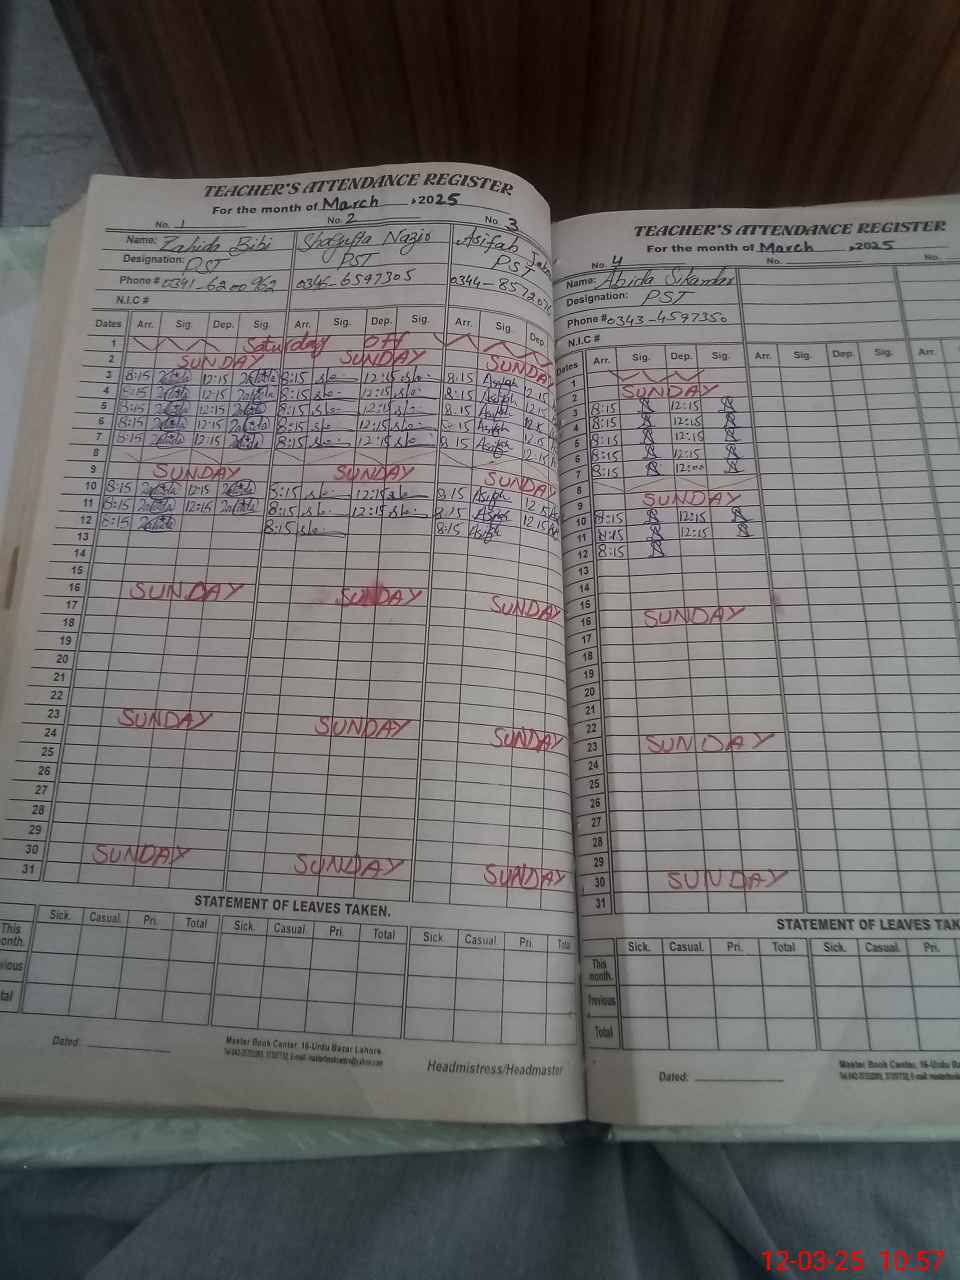 TEACHER'S ATTENDANCE REGISTER
For the month of March 2025
No. 1 No. 2 No. 3
Name: Zahida Bibi Shagufta Nazir Asifah
Designation: PST PST PST
Phone # 0341-6200962 0345-6597305 0344-857207
N.I.C #
Dates Arr. Sig. Dep. Sig. Arr. Sig. Dep. Sig. Arr. Sig. Dep.
1 Saturday off
2 SUNDAY SUNDAY SUNDAY
3 8:15 12:15 8:15 12:15 8:15 Asifah 12:15
4 8:15 12:15 8:15 12:15 8:15 Asifah 12:15
5 8:15 12:15 8:15 12:15 8:15 Asifah 12:15
6 8:15 12:15 8:15 12:15 8:15 Asifah 12:15
7 8:15 12:15 8:15 12:15 8:15 Asifah 12:15
8
9 SUNDAY SUNDAY SUNDAY
10 8:15 12:15 8:15 12:15 8:15 Asifah 12:15
11 8:15 12:15 8:15 12:15 8:15 Asifah 12:15
12 8:15 8:15 8:15 Asifah
13
14
15
16 SUNDAY SUNDAY SUNDAY
17
18
19
20
21
22
23 SUNDAY SUNDAY SUNDAY
24
25
26
27
28
29
30 SUNDAY SUNDAY SUNDAY
31
STATEMENT OF LEAVES TAKEN.
Sick. Casual. Pri. Total Sick. Casual. Pri. Total Sick. Casual. Pri. Total
This
month.
Dated:
Master Book Center, 16-Urdu Bazar Lahore
Headmistress/Headmaster
TEACHER'S ATTENDANCE REGISTER
For the month of March 2025
No. 4 No. No.
Name: Abida Sikandar
Designation: PST
Phone # 0343-4597350
N.I.C #
Dates Arr. Sig. Dep. Sig. Arr. Sig. Dep. Sig. Arr.
1
2 SUNDAY
3 8:15 12:15
4 8:15 12:15
5 8:15 12:15
6 8:15 12:15
7 8:15 12:00
8
9 SUNDAY
10 8:15 12:15
11 8:15 12:15
12 8:15
13
14
15
16 SUNDAY
17
18
19
20
21
22
23 SUNDAY
24
25
26
27
28
29
30 SUNDAY
31
STATEMENT OF LEAVES TAK
Sick. Casual. Pri. Total Sick. Casual. Pri.
This
month.
Previous
Total
Dated:
Master Book Center, 16-Urdu
12-03-25 10:57